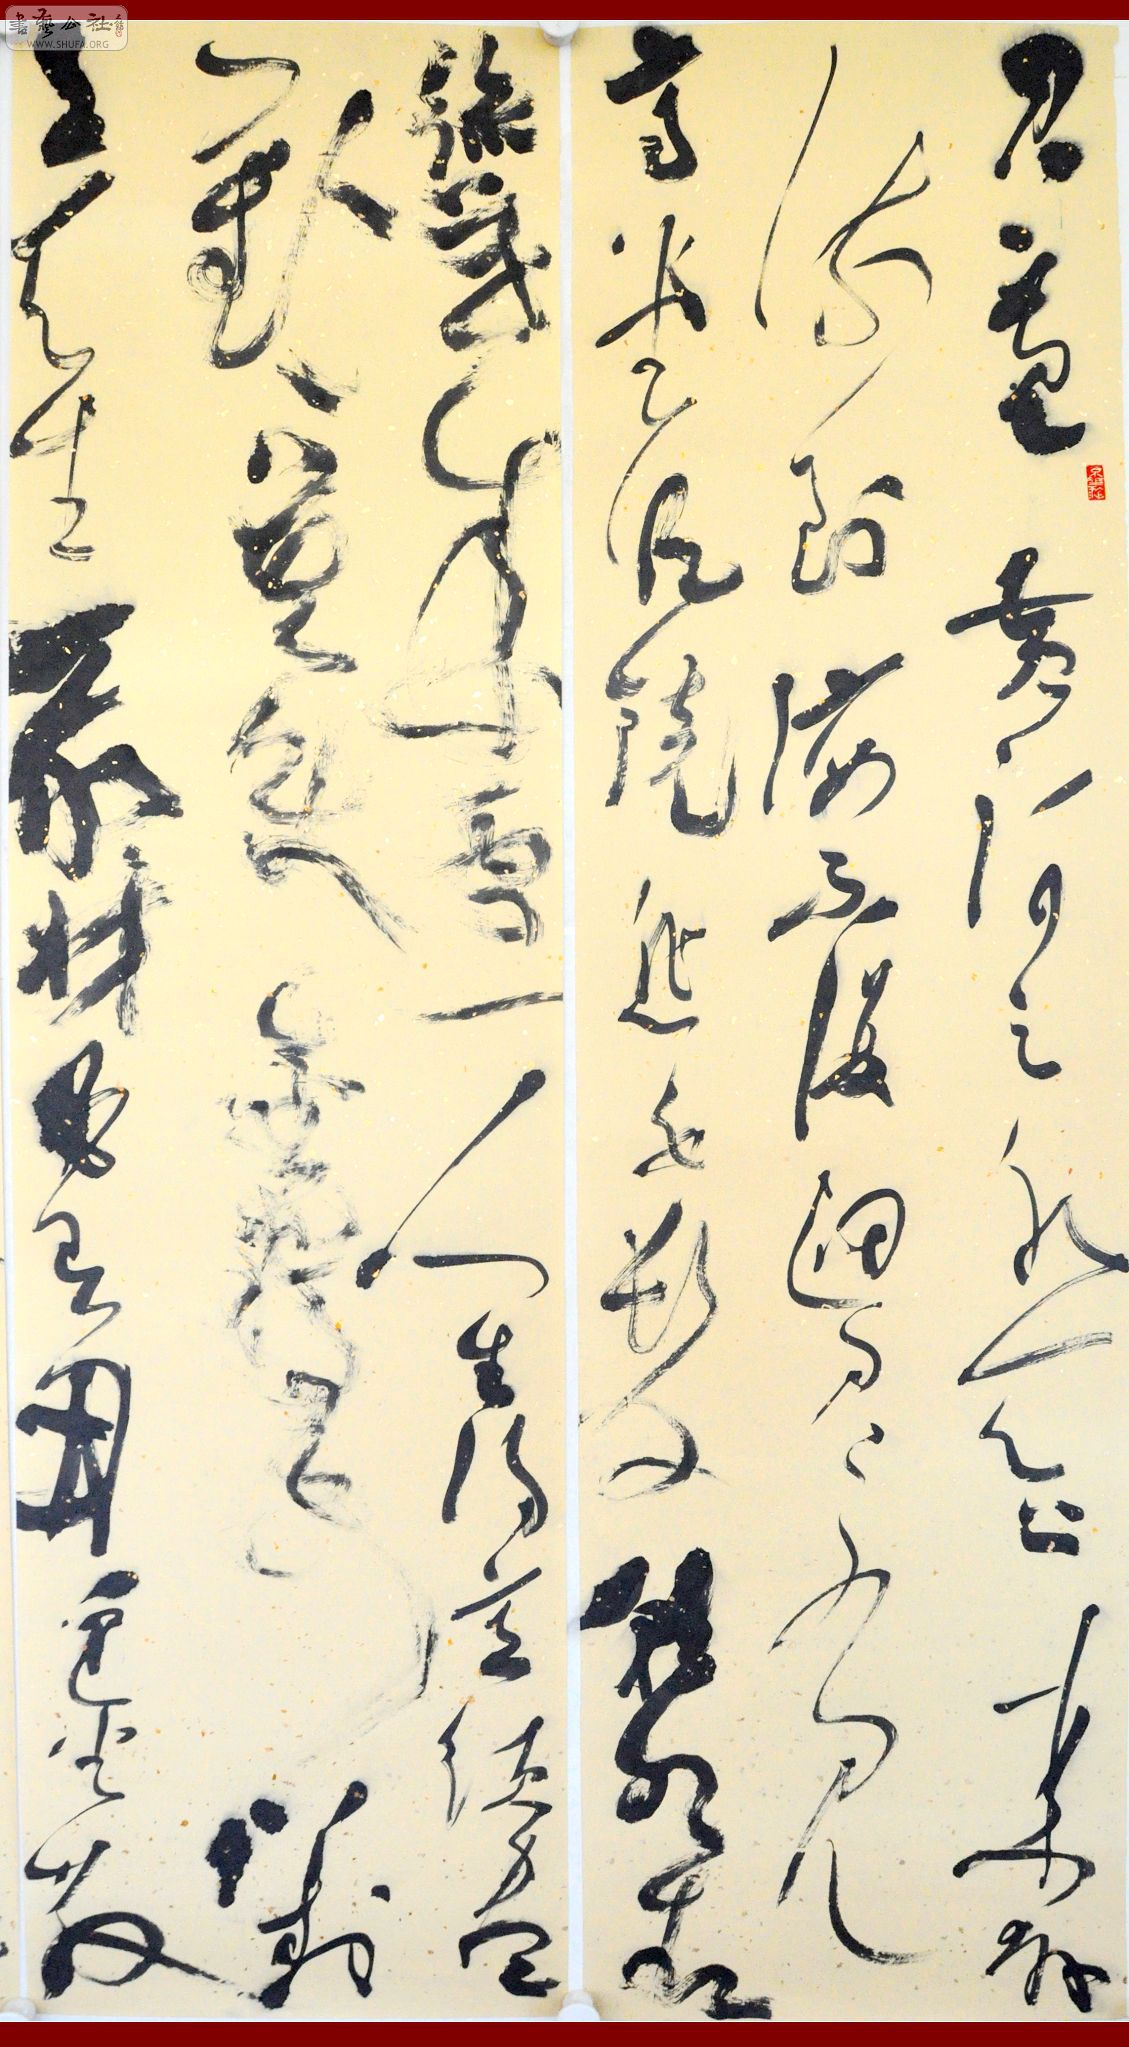 書藝公社
WWW.SHUFA.ORG
君不見黄河之水天上来奔
流到海不復迴君不見
高堂明鏡悲白髮朝如青
絲暮成雪人生得意須盡
歡莫使金樽空對
月天生我材必有用千金散